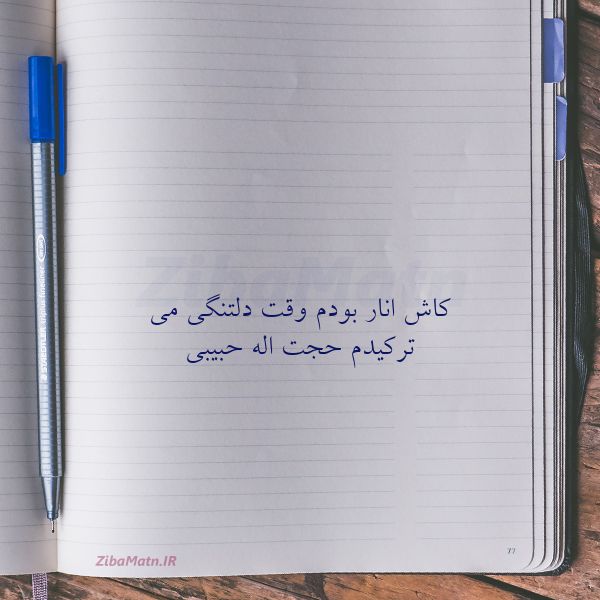 ZibaMatn
کاش انار بودم وقت دلتنگی می
ترکیدم حجت اله حبیبی
77
ZibaMatn.IR